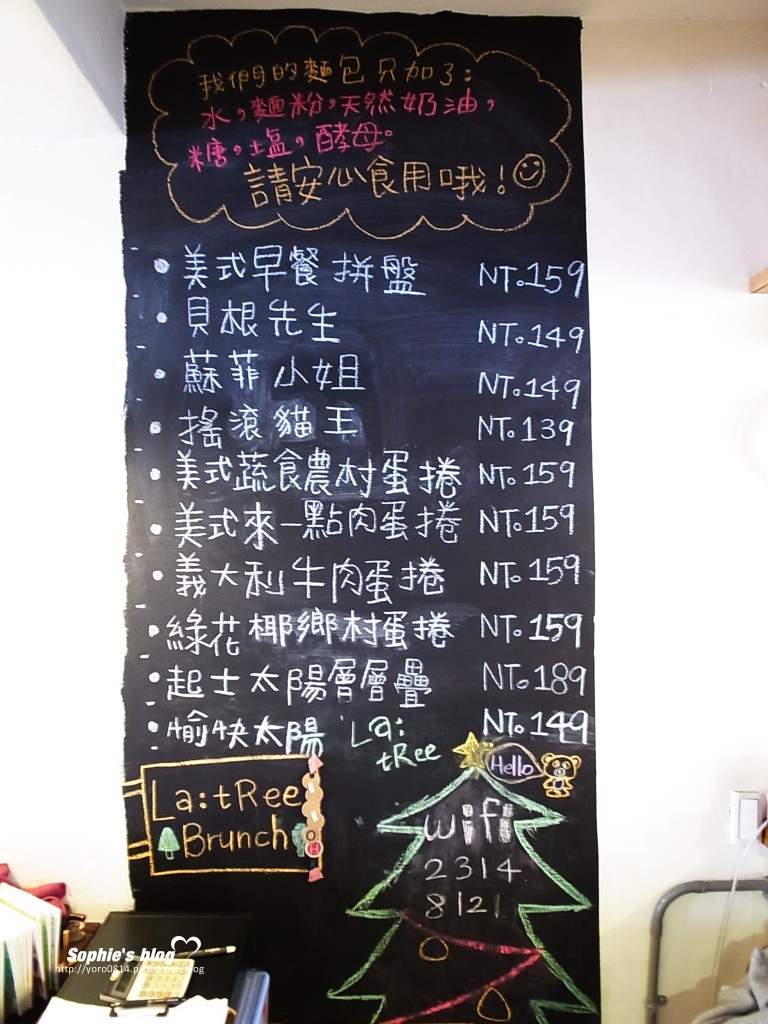 我們的麵包只加了:
水,麵粉,天然奶油,
糖,塩,酵母。
請安心食用哦!
美式早餐拼盤 NT.159
貝根先生 NT.149
蘇菲小姐 NT.149
搖滾貓王 NT.139
美式蔬食農村蛋捲 NT.159
美式來一點肉蛋捲 NT.159
義大利牛肉蛋捲 NT.159
綠花椰鄉村蛋捲 NT.159
起士太陽層層疊 NT.189
愉快太陽 NT.149
La:
tRee
Hello
La:tRee
Brunch
wifi
2314
8121
Sophie's blog